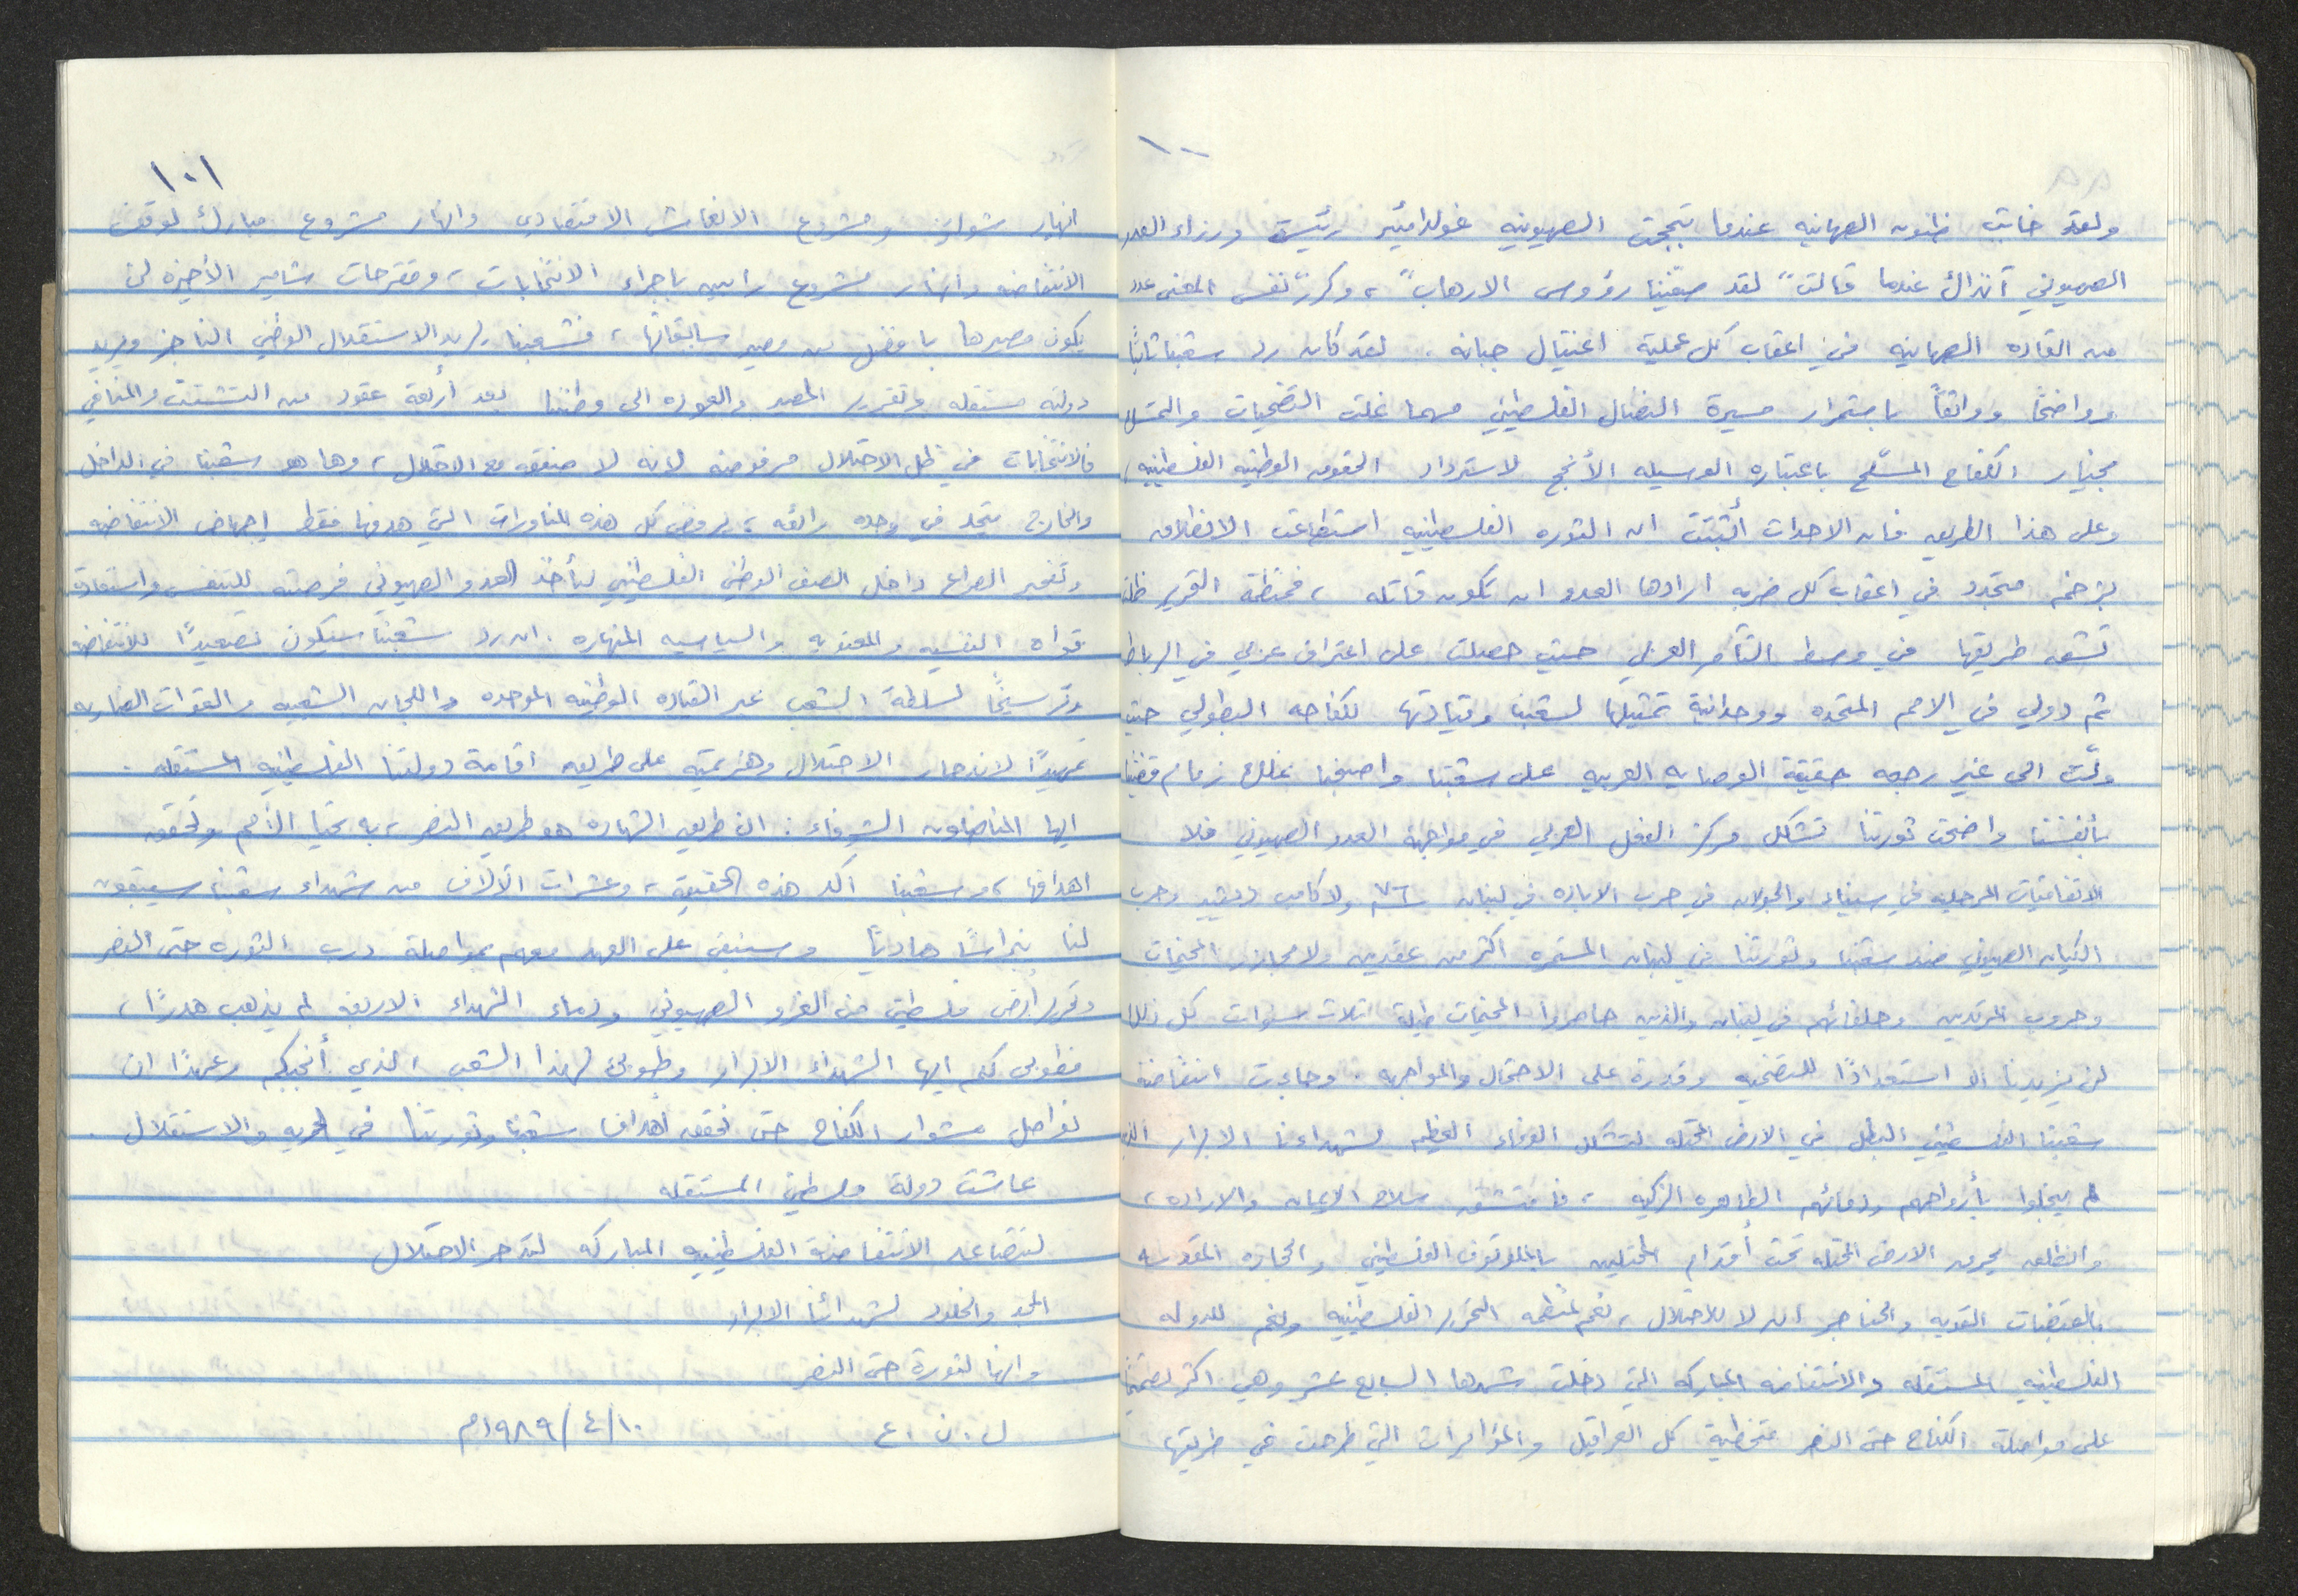 ١٠٠
ولقد خابت ظنون الصهاينه عندما تبجحت الصهيونيه غولدامئير رئيسة وزراء العدو
الصهيوني آنذاك عندما قالت " لقد صفينا رؤوس الارهاب " ، وكرر نفس المعنى عدد
من القاده الصهاينه في اعقاب كل عملية اغتيال جبانه . لقد كان رد شعبنا ثابتًا
وواضحًا وواثقًا باستمرار مسيرة النضال الفلسطيني مهما غلت التضحيات والتمسك
بخيار الكفاح المسلّح باعتباره الوسيله الأنجح لاسترداد الحقوق الوطنيه الفلسطينيه ،
وعلى هذا الطريق فان الاحداث أثبتت ان الثوره الفلسطينيه استطاعت الانطلاق
بزخم متجدد في اعقاب كل ضربه ارادها العدو ان تكون قاتله ، فمنظمة التحرير ظلت
تشق طريقها في وسط التآمر العربي حيث حصلت على اعتراف عربي في الرباط
ثم دولي في الامم المتحده ووحدانية تمثيلها لشعبنا وقيادتها لكفاحه البطولي حيث
ولّت الى غير رجعه حقيقة الوصايه العربيه على شعبنا واصبحنا نملك زمام قضيتنا
بأنفسنا واضحت ثورتنا تشكل مركز الفعل العربي في مواجهة العدو الصهيوني فلا
الاتفاقيات المرحليه في سيناء والجولان في حرب الاباده في لبنان ٧٦م ولا كامب ديفيد وحرب
الكيان الصهيوني ضد شعبنا وثورتنا في لبنان المستمره اكثر من عقدين ولا مجازر المخيمات
وحروب المرتدين وحلفائهم في لبنان والذين حاصروا المخيمات طيلة ثلاث سنوات كل ذلك
لن يزيدنا الا استعدادًا للتضحيه وقدرة على الاحتمال والمواجهه . وجاءت انتفاضة
شعبنا الفلسطيني البطل في الارض المحتله لتشكل الوفاء العظيم لشهداءنا الابرار الذين
لم يبخلوا بأرواحهم ودمائهم الطاهره الزكيه ، فامتشق سلاح الايمان والاراده ،
وانطلق يحرق الارض المحتله تحت أقدام المحتلين بالملوتوف الفلسطيني والحجاره المقدسه
بالقبضات القويه والحناجر ان لا للاحتلال ، نعم لمنظمه التحرير الفلسطينيه ونعم للدوله
الفلسطينيه المستقله والانتفاضه المباركه التي دخلت شهرها السابع عشر وهي اكثر تصميمًا
على مواصلة الكفاح حتى النصر متخطية كل العراقيل والمؤامرات التي طرحت في طريقها
١٠١
انهار شولتز ومشروع الانعاش الاقتصادي وانهار مشروع مبارك لوقف
الانتفاضه وانهار مشروع رابين باجراء الانتخابات ، ومقترحات شامير الأخيره لن
يكون مصيرها بافضل من مصير سابقاتها ، فشعبنا يريد الاستقلال الوطني الناجز ويريد
دولته مستقله وتقرير المصير والعوده الى وطننا بعد أربعة عقود من التشتت والمنافي
فالانتخابات في ظل الاحتلال مرفوضه لانه لا صفقه مع الاحتلال ، وها هو شعبنا في الداخل
والخارج يتحد في وحده رائعه ، لرفض كل هذه المناورات التي هدفها فقط إجهاض الانتفاضه
وتفجير الصراع داخل الصف الوطني الفلسطيني ليأخذ العدو الصهيوني فرصته للتنفس واستعادة
قواه النفسيه والمعنويه والسياسيه المنهاره . ان رد شعبنا سيكون تصعيدًا للانتفاضه
وترسيخًا لسلطة الشعب عبر القياده الوطنيه الموحده واللجان الشعبيه والقوات الضاربه
تمهيدًا لاندحار الاحتلال وهزيمته على طريق اقامة دولتنا الفلسطينيه المستقله .
ايها المناضلون الشرفاء : ان طريق الشهاده هو طريق النصر ، به تحيا الأمم وتحقق
اهدافها ، وشعبنا اكد هذه الحقيقه ، وعشرات الألاف من شهداء شعبنا سيبقون
لنا نبراسًا هاديًا وسنبقى على العهد معهم بمواصلة درب الثوره حتى النصر
وتحرير أرض فلسطين من الغزو الصهيوني ودماء الشهداء الاربعه لم يذهب هدرًا ،
فطوبى لكم ايها الشهداء الابرار وطوبى لهذا الشعب الذي أنجبكم وعهدًا ان
نواصل مشوار الكفاح حتى نحقق أهداف شعبنا وثورتنا في الحريه والاستقلال .
عاشت دولة فلسطين المستقله
لتتصاعد الانتفاضة الفلسطينيه المباركه لتدحر الاحتلال
المجد والخلود لشهدائنا الابرار
وانها لثورة حتى النصر
ل . ن . ع ١٠/٤/١٩٨٩م